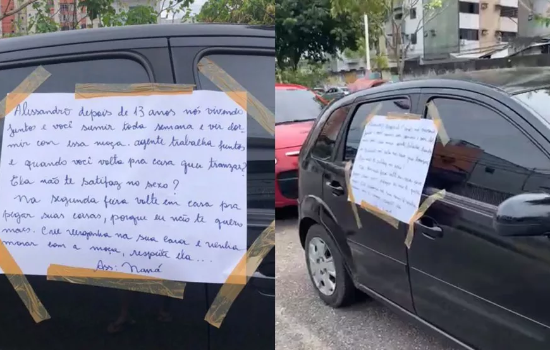 Alessandro depois de 13 anos nós vivendo
junto e você sumir toda semana e vir dor
mir com essa moça, agente trabalha juntos
e quando você volta pra casa quer transar?
Ela não te satisfaz no sexo?
Na segunda feira volte em casa pra
pegar suas coisas, porque eu não te quero
mais. Crie vergonha na sua cara e venha
morar com a moça, respeite ela...
Ass: Naná